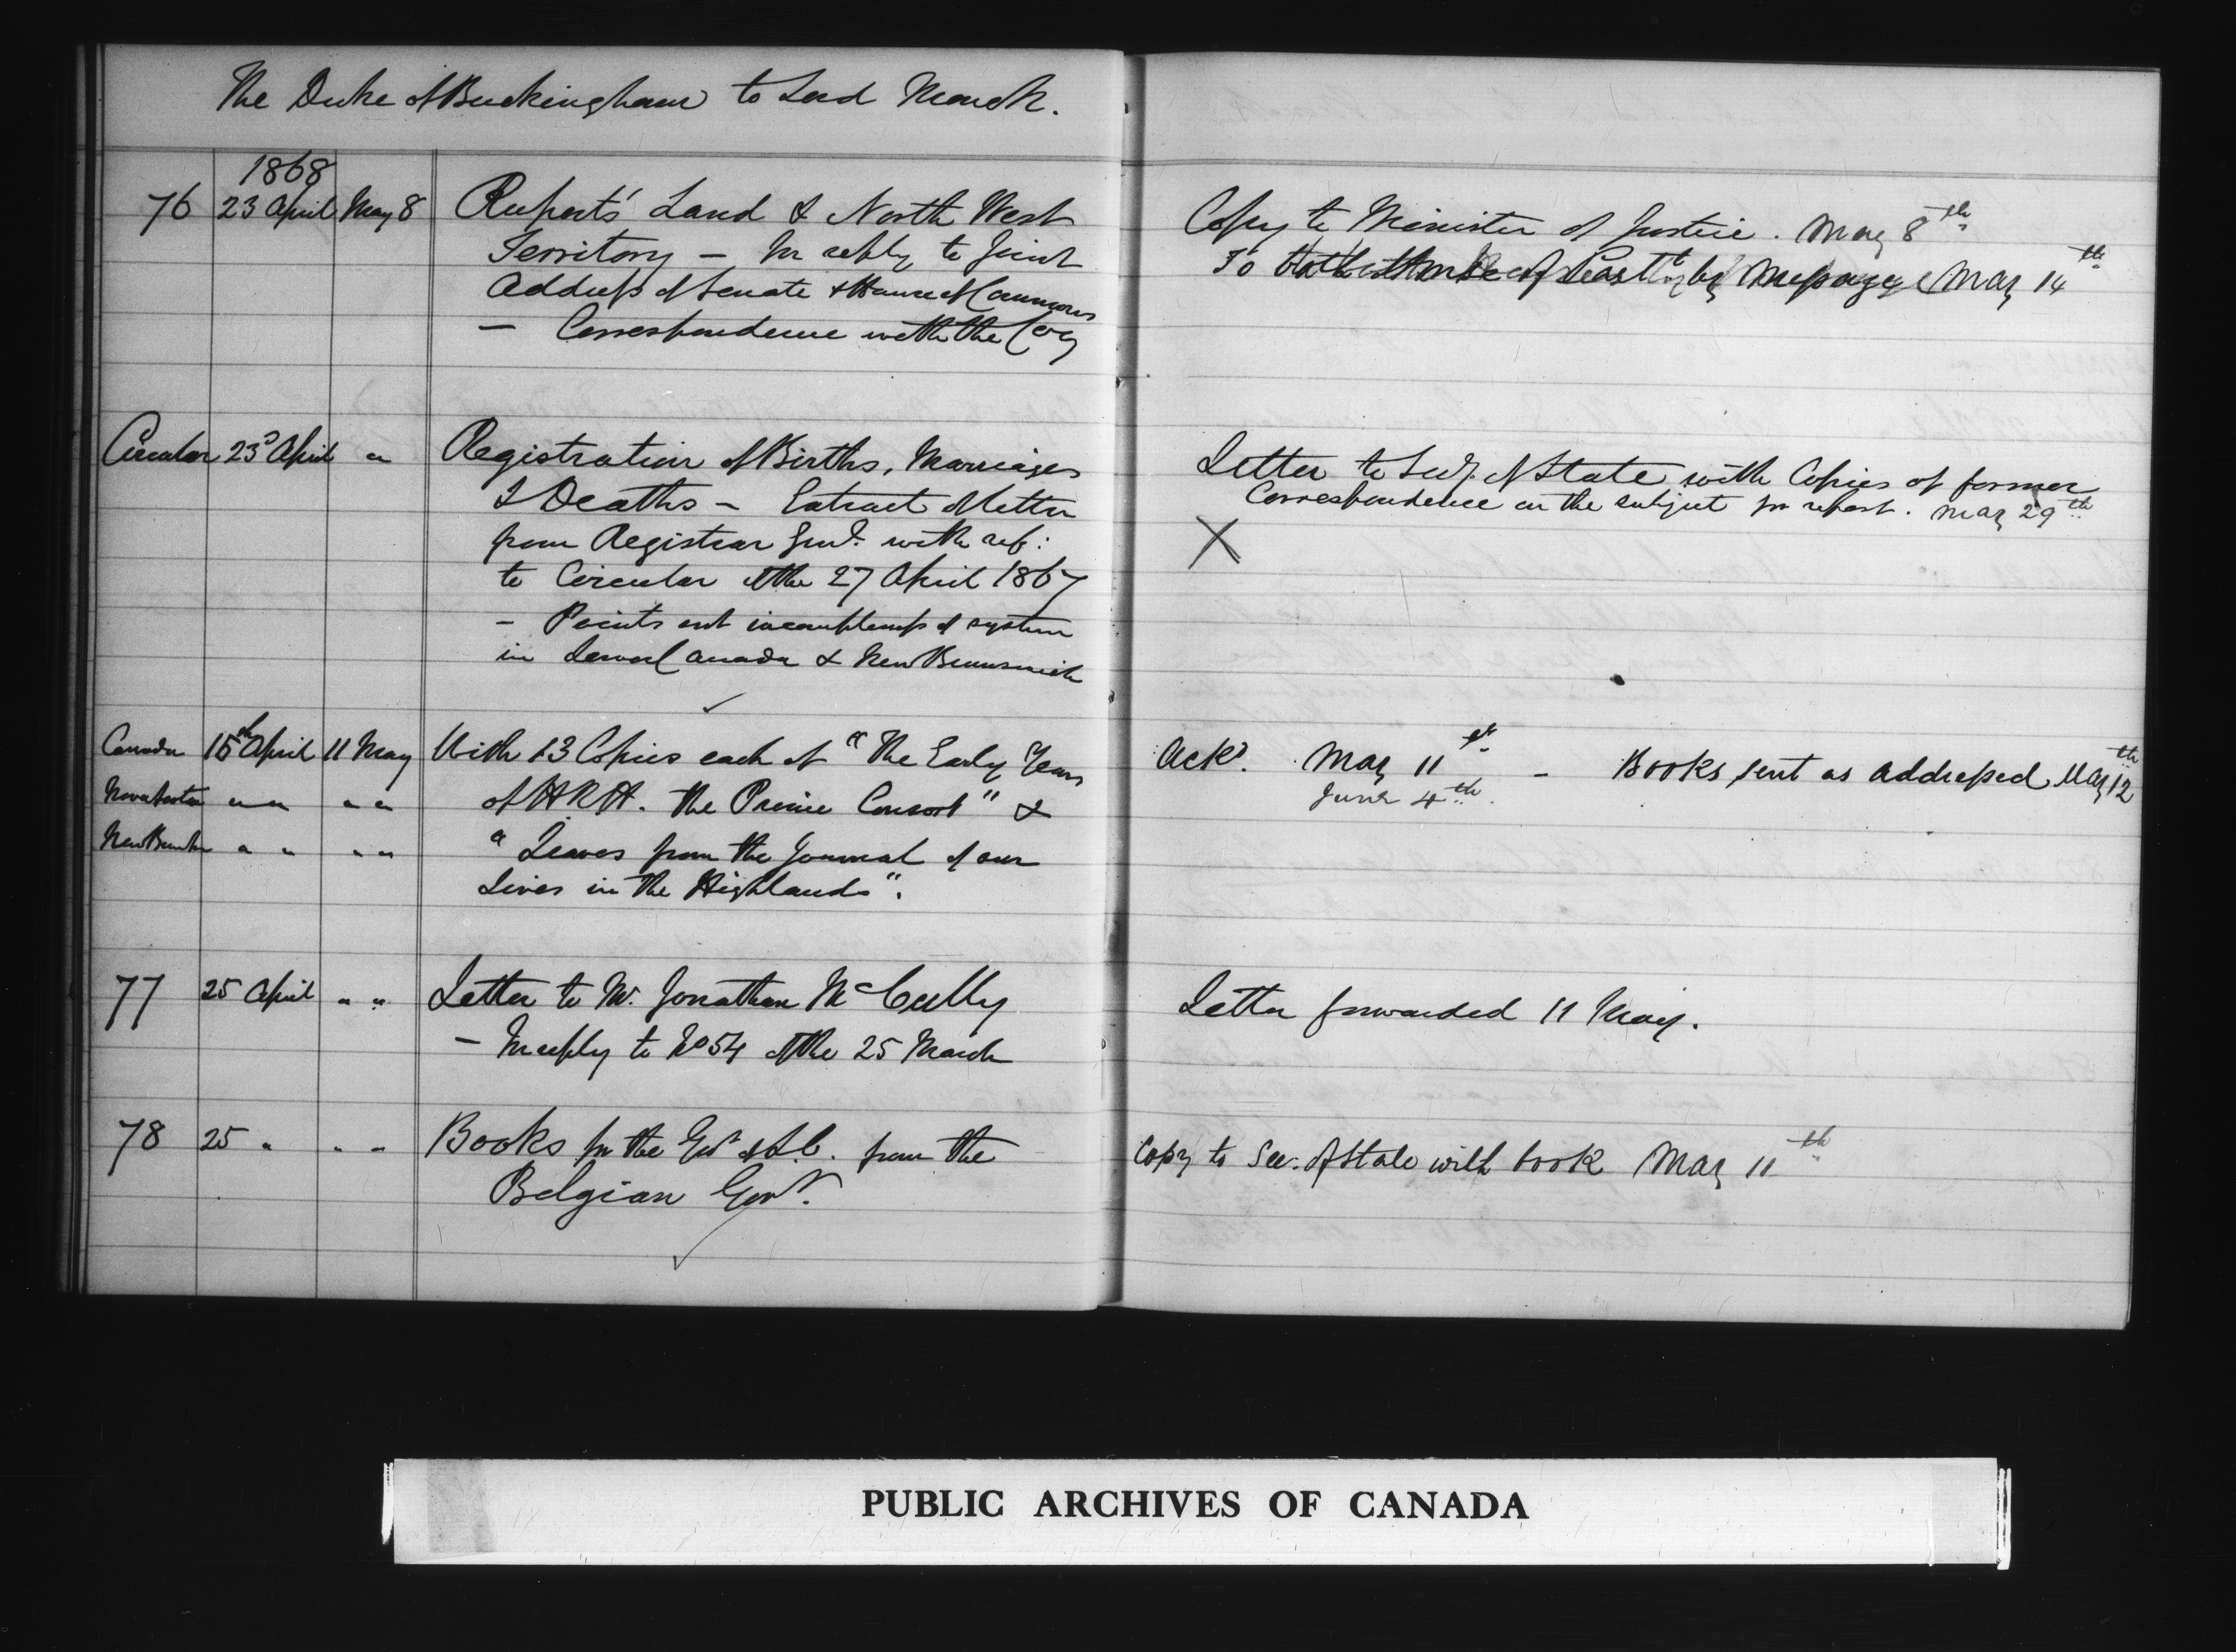 The Duke of Buckingham to Lord Monck.
1868
76 23 April May 8 Rupert's Land & North West
Territory — In reply to Joint
Address of Senate & House of Commons
— Correspondence with the Coy
Copy to Minister of Justice. May 8th
To by Message May 14th
Circular 23d April " Registration of Births, Marriages
& Deaths — Extract of letter
from Registrar Genl. with ref:
to Circular of the 27 April 1867
— Points out incompleteness of system
in Lower Canada & New Brunswick
Letter to Secy. of State with Copies of former
Correspondence on the subject for report. May 29th
X
Canada 15th April 11 May With 13 Copies each of "The Early Years
Nova Scotia " " " " of H R H. the Prince Consort" &
New Brunsk " " " " "Leaves from the Journal of our
Lives in the Highlands".
Ackd. May 11th — Books sent as addressed May 12th
June 4th.
77 25 April " " Letter to Mr. Jonathan McCully
— In reply to No 54 of the 25 March
Letter forwarded 11 May.
78 25 " " " Books for the from the
Belgian Govt.
Copy to Sec. of State with book May 11th
PUBLIC ARCHIVES OF CANADA